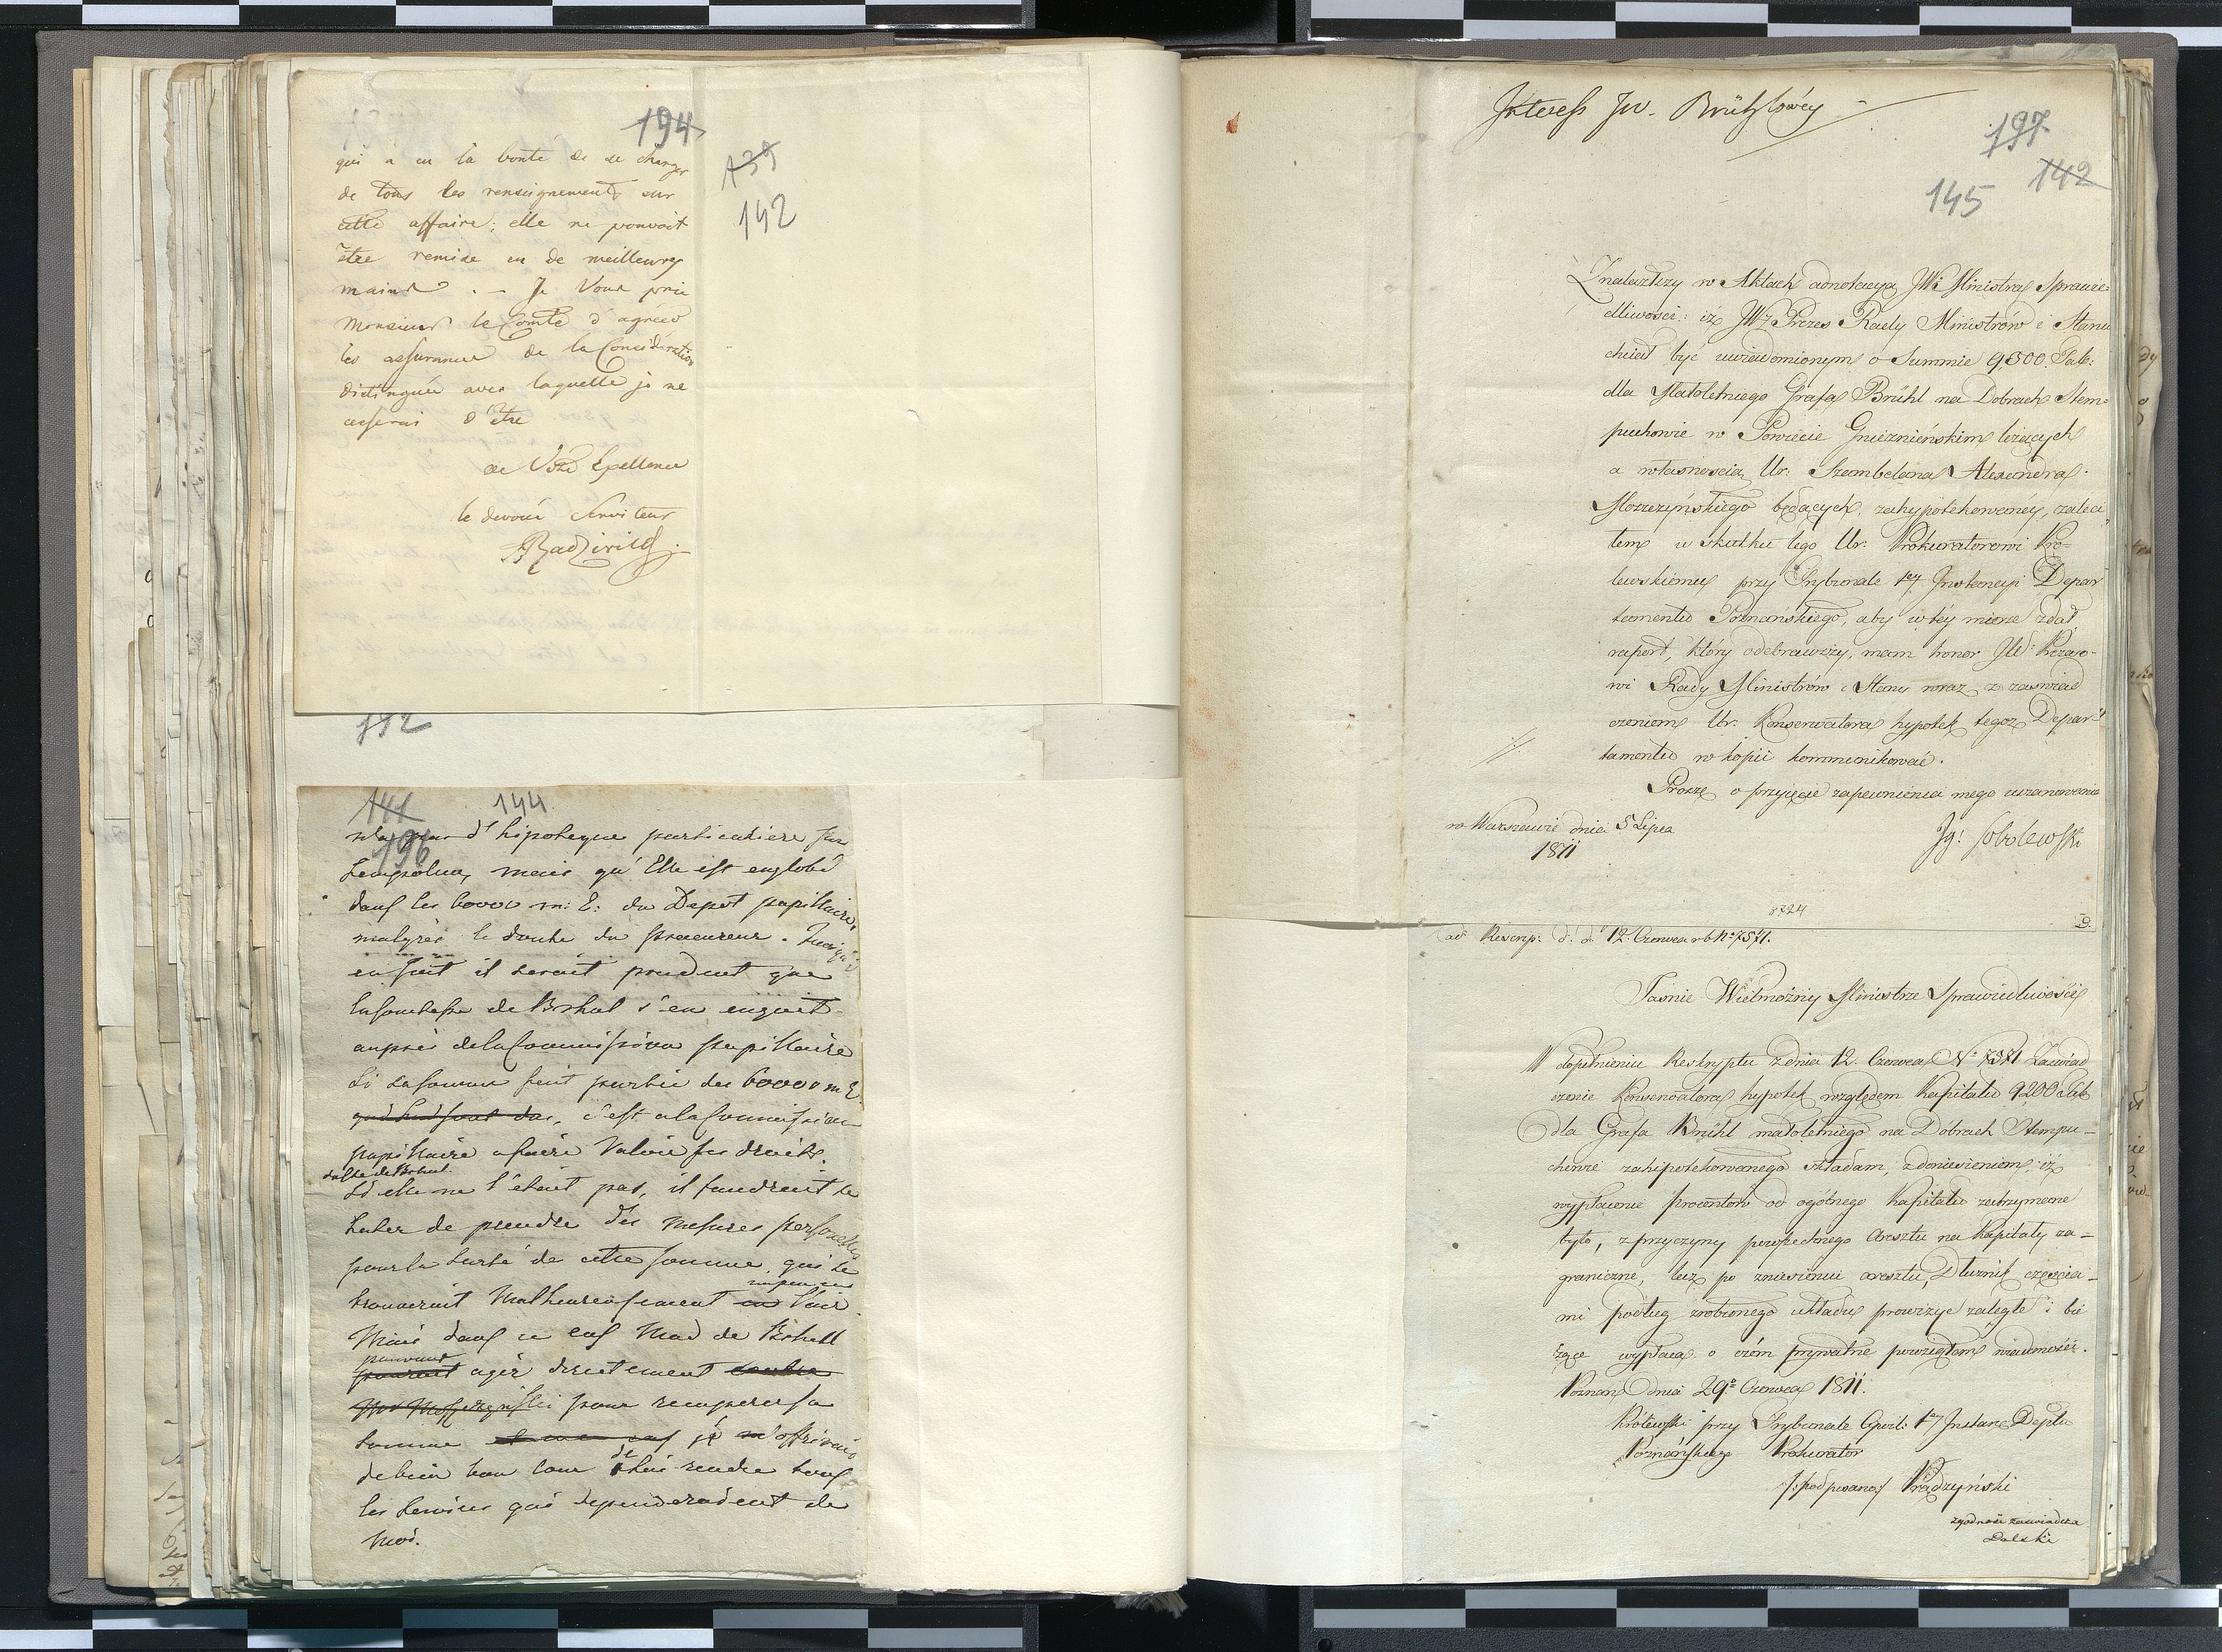 194
qui a eu la bonté de se charger
de tous les renseignements sur
cette affaire; elle ne pouvoit
être remise en de meilleures
mains. – Je Vous prie
Monsieur le Comte d'agréer
les assurances de la Considération
distinguée avec laquelle je ne
cesserai d'être
de Votre Excellence
le devoué Serviteur
ARadziwill
139
142
192
141 144
196
d'hipoteque particuliere sur
mais qu'Elle est englobé
dans les 60000 m: E: du Depot pupillaire,
malgrés le doute du procureur.
en suit il serait prudent que
la Comtesse de Brhul s'en enquit
auprès de la Commission pupillaire
Si la somme fait partie des 60000 m E.
c'est a la Commission
pupillaire a faire Valoir ses droits.
de Brhul.
Si elle ne l'était pas, il faudrait se
hater de prendre des mesures personelles
pour la sureté de cette somme, qui se
un peu en
trouverait Malheureusement en l'air
Mais dans ce cas Mad de Brhull
pouvant
pourait agir directement contre
pour recuperer sa
somme et en ce cas je m'offrirais
de
de bien bon Cœur lui rendre tous
les Services qui dependeraient de
moi.
Interess JW. Brühlowéy
197
142
145
Znalazłszy w Aktach adnotacyą JWi Ministra Sprawie-
dliwości: iż JWy Prezes Rady Ministrów i Stanu
chciał być uwiadomionym o Summie 9500 Tal:
dla Małoletniego Grafa Brühl na Dobrach Stem-
puchowie w Powiecie Gnieznieńskim leżących
a własnością Ur: Szambelana Alexandra
Moszczyńskiego będących, zahypotekowanéy, zaleci
łem w skutku tego Ur: Prokuratorowi Kró-
lewskiemu przy Trybunale 1ey Instancyi Depar
tamentu Poznańskiego, aby w téy mierze zdał
raport, który odebrawszy, mam honor JW: Prezeso-
wi Rady Ministrów i Stanu wraz z zaswiad
czeniem Ur: Konserwatora hypotek tegoż Depar-
tamentu w kopii kommunikować.
Proszę o przyięcie zapewnienia mego uszanowania
w Warszawie dnia 5 Lipca
1811
Ig: Sobolewski
8724
D.
ad Rescrip: d: d: 12 Czerwca rb No 7571.
Jaśnie Wielmożny Ministrze Sprawiedliwości
W dopełnieniu Reskryptu z dnia 12 Czerwca No 7571 Zaświad
czenie Konserwatora hypotek względem Kapitału 9200 Tal
dla Grafa Brühl małoletniego na Dobrach Stempu-
chowie zahipotekowanego składam, z doniesieniem, iż
wypłacenie procentów od ogólnego Kapitału zatrzymane
było, z przyczyny powszechnego Aresztu na Kapitały za-
graniczne, lecz po zniesieniu aresztu, Dłużnik częścia-
mi podług zrobionego układu prowizye zaległe i bie
żące wypłaca, o czém prywatnie powziąłem wiadomość.
Poznań dnia 29o Czerwca 1811.
Królewski przy Trybunale Cywil: 1ey Instanc: Deptu
Poznańskiego Prokurator
/:podpisano:/ Prądzyński
zgodność zaswiadcza
Dalski